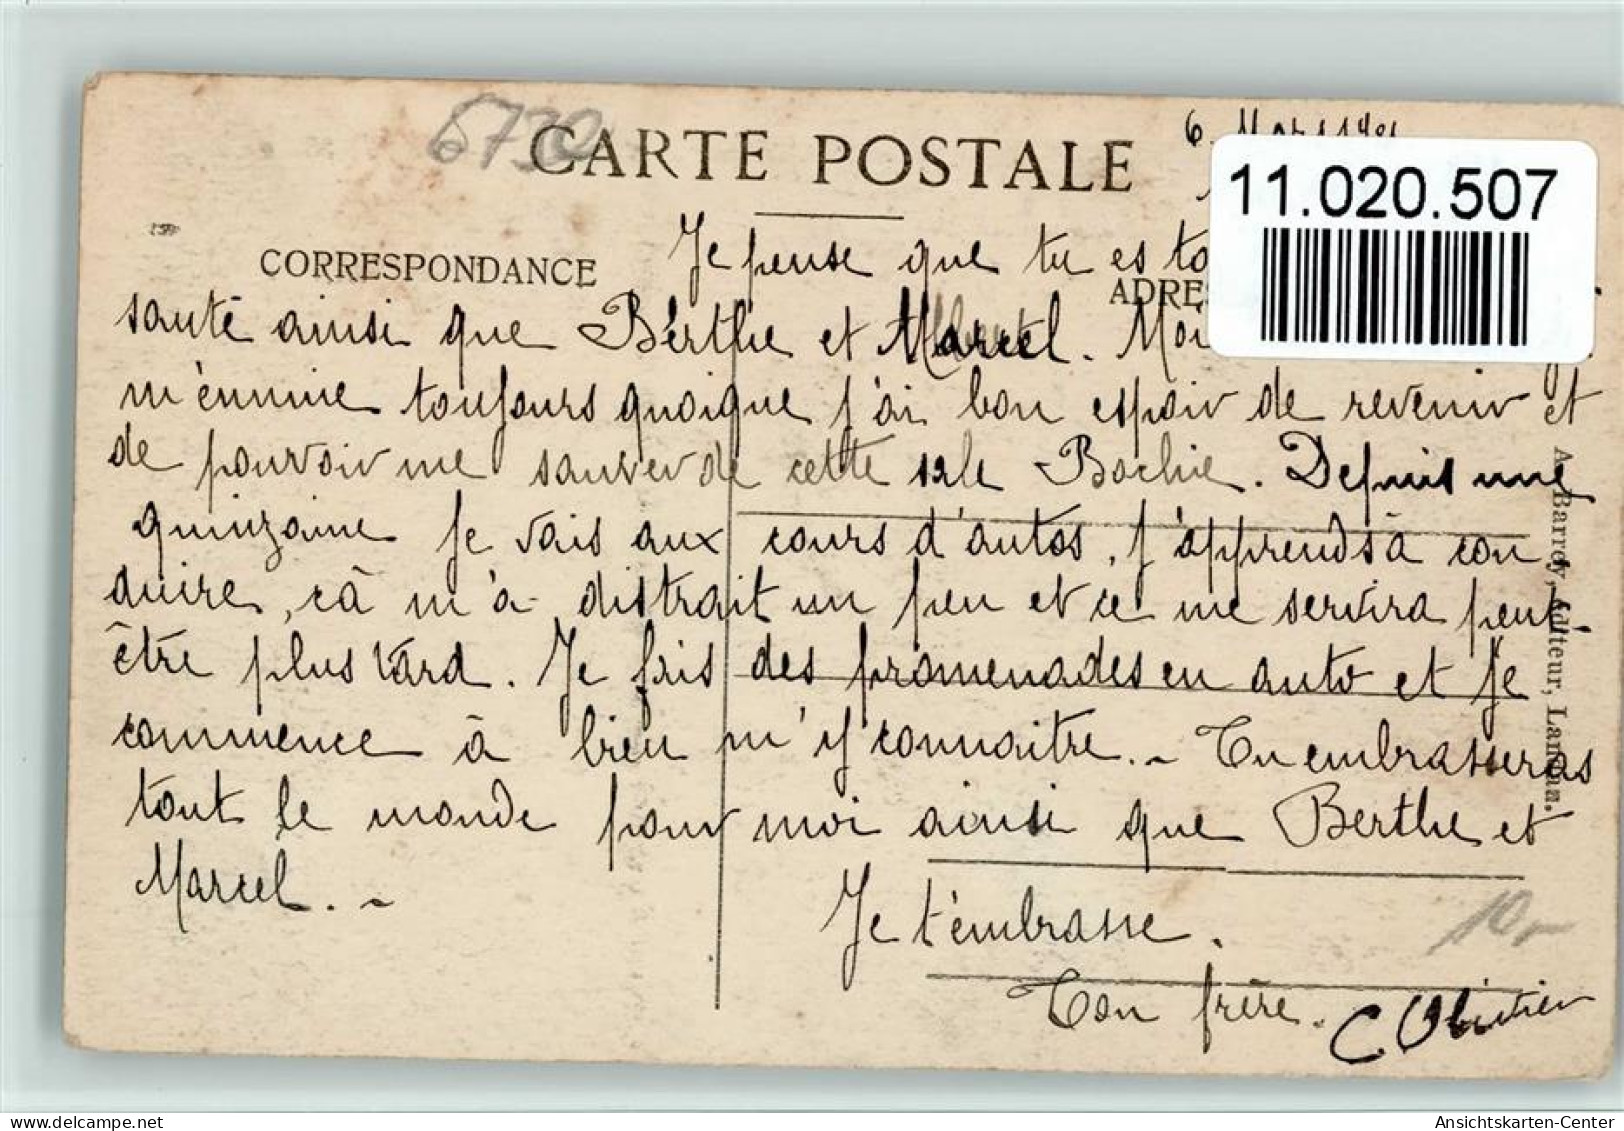 6730
CARTE POSTALE
6 Mars
11.020.507
CORRESPONDANCE
ADRES
Je pense que tu es to
santé ainsi que Berthe et Marcel. Moi
m'ennuie toujours quoique j'ai bon espoir de revenir et
de pouvoir me sauver de cette sale Bochie. Depuis une
quinzaine je vais aux cours d'autos, j'apprends à con
duire, çà m'a distrait un peu et ce me servira peut-
être plus tard. Je fais des promenades en auto et je
commence à bien m'y connaitre. ~ Tu embrasseras
tout le monde pour moi ainsi que Berthe et
Marcel. ~
Je t'embrasse.
Ton frère. C. Olivier
10,-
A. Barroy, éditeur, Landna.
Ansichtskarten-Center